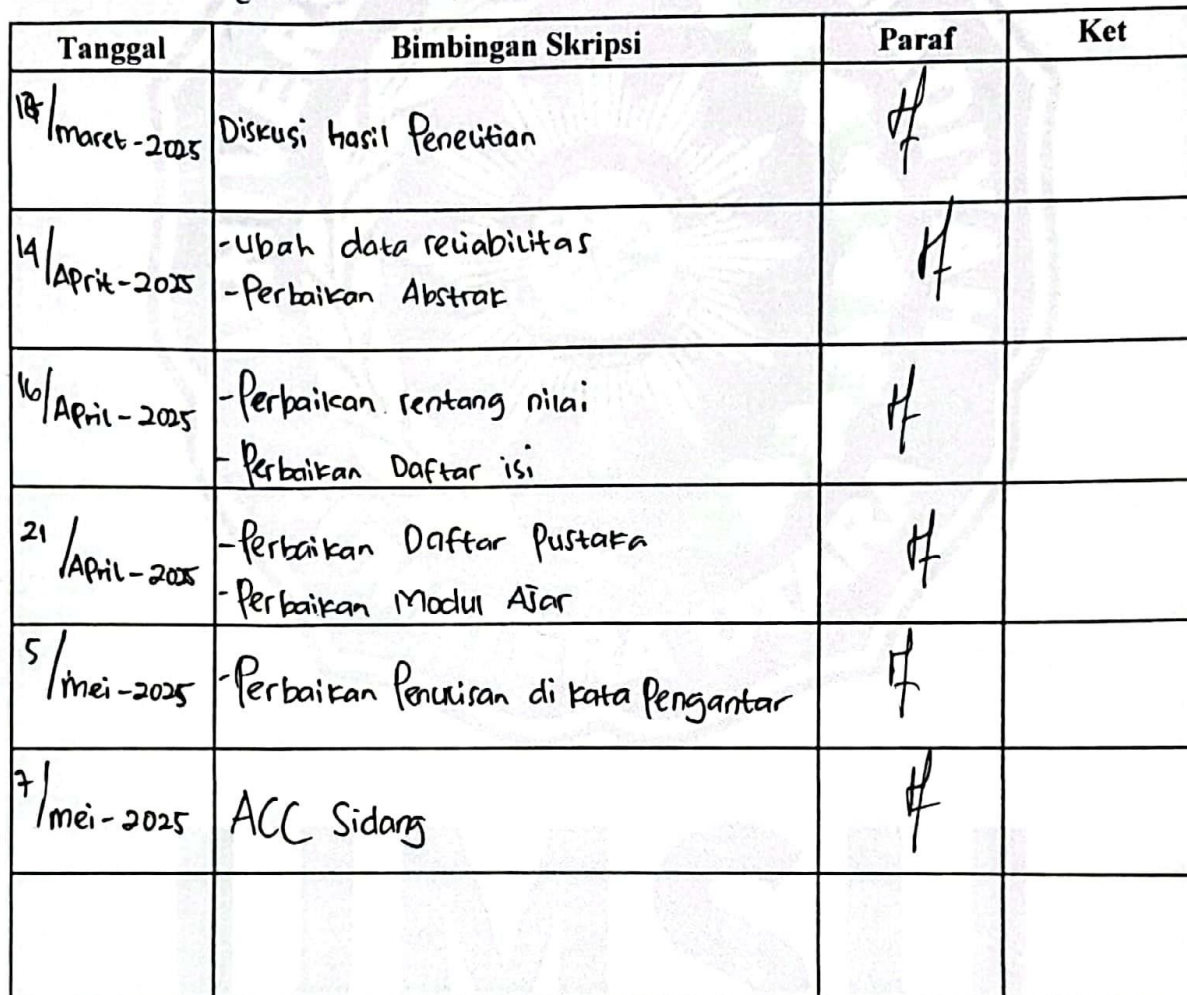 Tanggal Bimbingan Skripsi Paraf Ket
/maret-2025 Diskusi hasil Penelitian
14/April-2025 -ubah data reliabilitas
-Perbaikan Abstrak
16/April-2025 -Perbaikan rentang nilai
-Perbaikan Daftar isi
21/April-2025 -Perbaikan Daftar Pustaka
-Perbaikan Modul Ajar
5/mei-2025 -Perbaikan Penulisan di kata Pengantar
7/mei-2025 ACC Sidang
UMSU